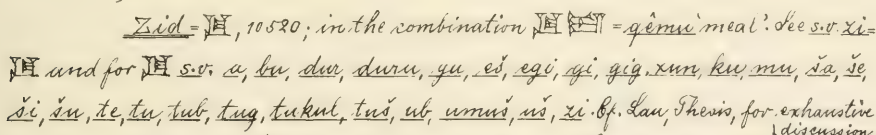 Zid = 𒂠, 10520; in the combination 𒂠 = qêmu 'meal'. See s.v. zi =
𒂠 und for 𒂠 s.v. a, bu, dur, duru, gu, eš, egi, gi, gig, xun, ku, mu, ša, še,
ši, šu, te, tu, tub, tug, tukul, tuš, ub, umuš, uš, zi. Cf. Lau, Thesis, for exhaustive
discussion